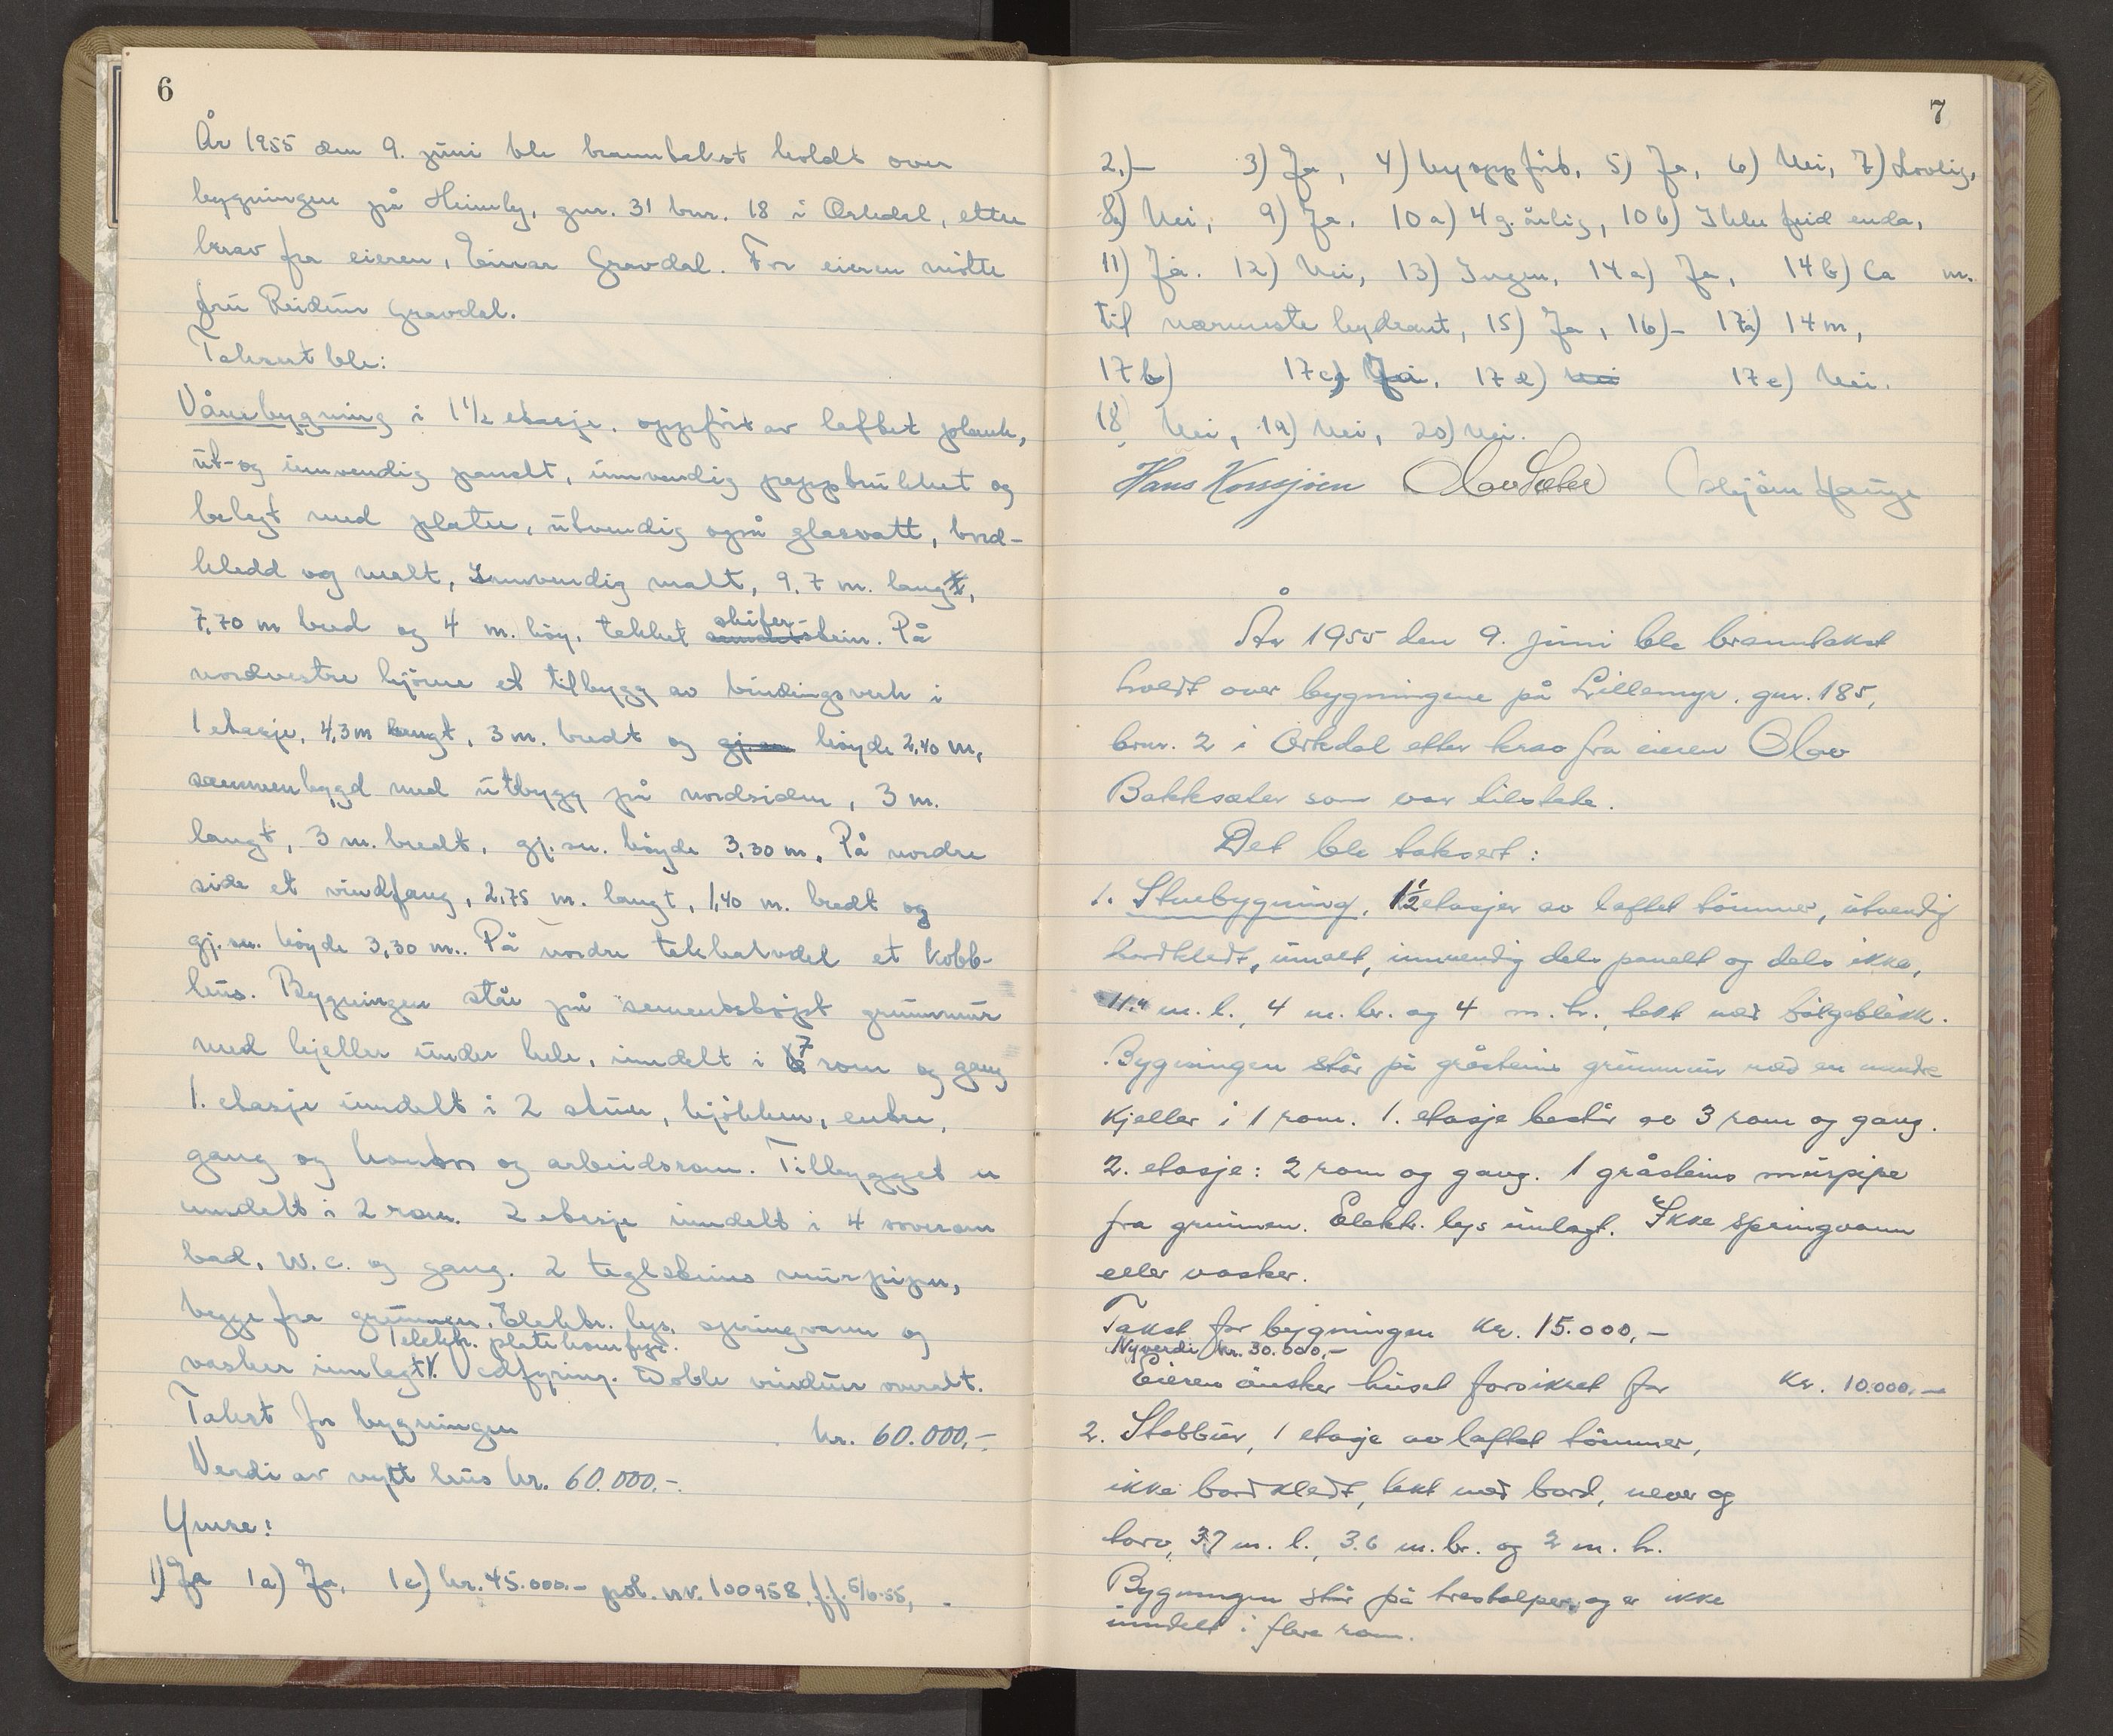 6
År 1955 den 9. juni ble branntakst holdt over
bygningen på Heimly, gnr. 31 bnr. 18 i Orkdal, etter
krav fra eieren, Einar Gravdal. For eieren møtte
fru Reidun Gravdal.
Taksert ble:
Våningsbygning i 1 1/2 etasje, oppført av laftet plank,
ut- og innvendig panelt, innvendig papptrukket og
belagt med plater, utvendig også glasvatt, bord-
kledd og malt, Innvendig malt, 9,7 m. lang,
7,70 m bred og 4 m. høy, tekket skifer-stein. På
nordvestre hjørne et tilbygg av bindingsverk i
1 etasje, 4,3 m langt, 3 m. bredt og høyde 2,40 m,
sammenbygd med utbygg på nordsiden, 3 m.
langt, 3 m. bredt, gj.sn. høyde 3,30 m. På nordre
side et vindfang, 2,75 m. langt, 1,40 m. bredt og
gj.sn. høyde 3,30 m.. På nordre takhalvdel et kobb-
hus. Bygningen står på sementstøpt grunnmur
med kjeller under hele, inndelt i 7 rom og gang
1. etasje inndelt i 2 stuer, kjøkken, entre,
gang og kontor og arbeidsrom. Tilbygget er
inndelt i 2 rom. 2 etasje inndelt i 4 soverom
bad, w.c. og gang. 2 teglsteins murpiper,
begge fra grunnen. Elektr. lys, springvann og
1 elektr. platekomfyr.
vasker innlagt. Vedfyring. Doble vinduer overalt.
Takst for bygningen kr. 60.000,-
Verdi av nytt hus kr. 60.000.-
Ymse:
1) Ja 1a) Ja, 1c) kr. 45.000.- pol. nr. 100958, f.f. 5/6-55,
7
2.)- 3) Ja, 4) Ny oppført, 5) Ja, 6) Nei, 7) Lovlig,
8) Nei, 9) Ja, 10a) 4 g. årlig, 10b) Ikke feid enda,
11) Ja. 12) Nei, 13) Ingen, 14a) Ja, 14b) Ca m.
til nærmeste hydrant, 15) Ja, 16)- 17a) 14 m,
17b) 17c) Ja, 17d) Nei 17e) Nei.
18 Nei, 19) Nei, 20) Nei.
Hans Korsjøen Olav Sæter Asbjörn Hauge
År 1955 den 9. juni ble branntakst
holdt over bygningene på Lillemyr, gnr. 185,
bnr. 2 i Orkdal etter krav fra eieren Olav
Bakksæter som var tilstede.
Det ble taksert:
1. Stuebygning, 1 1/2 etasjer av laftet tömmer, utvendig
bordkledt, umalt, innvendig dels panelt og dels ikke,
11.4 m. l., 4 m. br. og 4 m. h., tekt med bölgeblikk.
Bygningen står på gråsteins grunnmur med en mindre
kjeller i 1 rom. 1. etasje består av 3 rom og gang.
2. etasje: 2 rom og gang. 1 gråsteins murpipe
fra grunnen. Elektr. lys innlagt. Ikke springvann
eller vasker.
Takst for bygningen Kr. 15.000,-
Nyverdi kr. 30.000,-
Eieren ønsker huset forsikret for Kr. 10.000.-
2. Stabbur, 1 etasje av laftet tömmer,
ikke bordkledt, tekt med bord, never og
torv, 3.7 m. l., 3.6 m. br. og 2 m. h.
Bygningen står på trestolper, og er ikke
inndelt i flere rom.